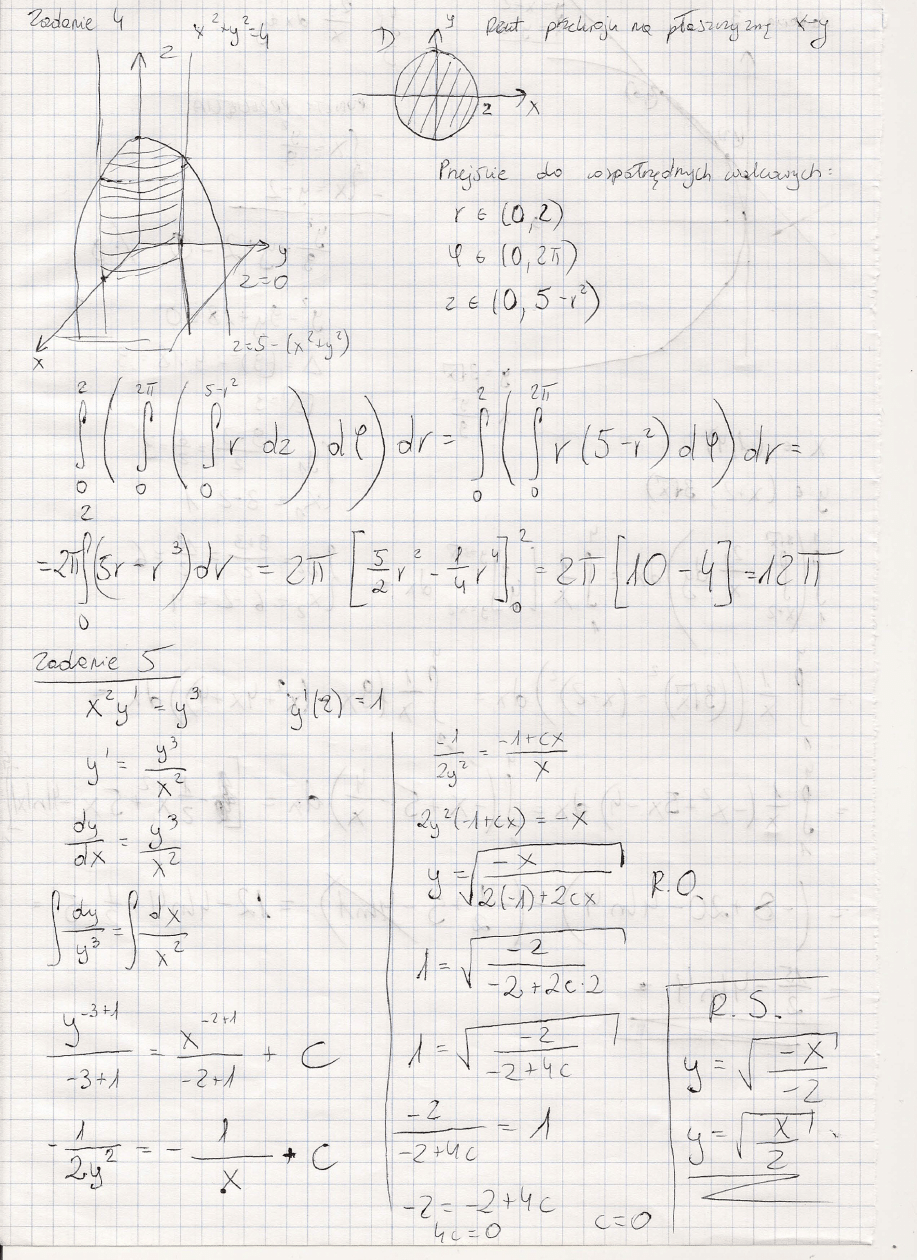 Zadanie 4
x²+y²=4
D
y
Rzut przekroju na płaszczyznę x-y
z
2
x
Przejście do współrzędnych walcowych:
r ∈ (0,2)
φ ∈ (0,2π)
z ∈ (0, 5-r²)
y
z=0
z=5-(x²+y²)
x
∫₀² ( ∫₀^2π ( ∫₀^5-r² r dz ) dφ ) dr = ∫₀² ( ∫₀^2π r (5-r²) dφ ) dr =
= 2π ∫₀² (5r - r³) dr = 2π [ 5/2 r² - 1/4 r⁴ ]₀² = 2π [10 - 4] = 12π
Zadanie 5
x²y' = y³
y'(2) = 1
y' = y³/x²
dy/dx = y³/x²
∫ dy/y³ = ∫ dx/x²
y^-3+1/-3+1 = x^-2+1/-2+1 + C
-1/2y² = -1/x + C
-1/2y² = -1+cx/x
2y²(-1+cx) = -x
y = √(-x/2(-1)+2cx)
R.O.
1 = √(-2/-2+2c·2)
1 = √(-2/-2+4c)
-2/-2+4c = 1
-2 = -2+4c
4c=0
c=0
R.S.
y = √(-x/-2)
y = √(x/2)